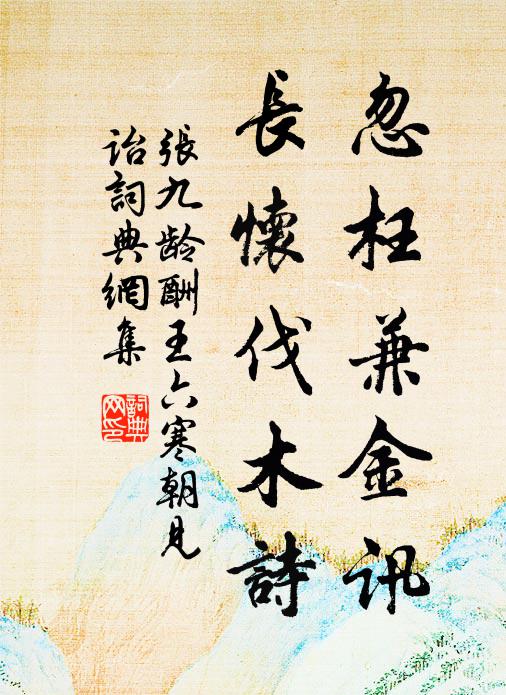 忽枉兼金訊
長懷伐木詩
張九齡酬王六寒朝見
詒詞典網集
詞典
网印